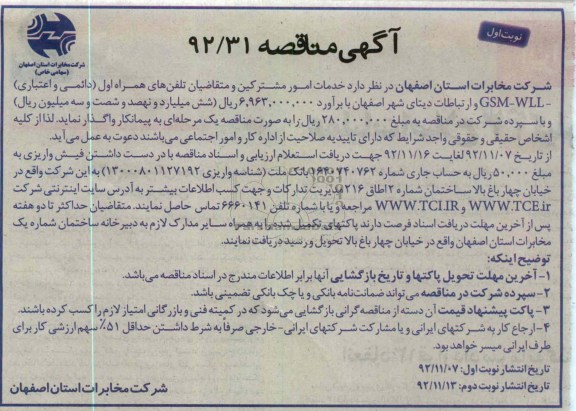 نوبت اول
آگهی مناقصه ۹۲/۳۱
شرکت مخابرات استان اصفهان
(سهامی خاص)
شرکت مخابرات استان اصفهان در نظر دارد خدمات امور مشترکین و متقاضیان تلفن‌های همراه اول (دائمی و اعتباری)
-GSM-WLL و ارتباطات دیتای شهر اصفهان با برآورد ۶,۹۶۳,۰۰۰,۰۰۰ ریال (شش میلیارد و نهصد و شصت و سه میلیون ریال)
و با سپرده شرکت در مناقصه به مبلغ ۲۸۰,۰۰۰,۰۰۰ ریال را به صورت مناقصه یک مرحله‌ای به پیمانکار واگذار نماید. لذا از کلیه
اشخاص حقیقی و حقوقی واجد شرایط که دارای تاییدیه صلاحیت از اداره کار و امور اجتماعی می‌باشند دعوت به عمل می‌آید.
از تاریخ ۹۲/۱۱/۰۷ لغایت ۹۲/۱۱/۱۶ جهت دریافت استعلام ارزیابی و اسناد مناقصه با در دست داشتن فیش واریزی به
مبلغ ۵۰,۰۰۰ ریال به حساب جاری شماره ۱۶۴۰۷۴۰۷۶۲ بانک ملت (شناسه واریزی ۱۳۰۰۰۸۰۱۱۲۷۱۹۲) به این شرکت واقع در
خیابان چهارباغ بالا ساختمان شماره ۲ اطاق ۲۱۶ مدیریت تدارکات و جهت کسب اطلاعات بیشتر به آدرس سایت اینترنتی شرکت
WWW.TCE.ir و WWW.TCI.IR مراجعه و یا با شماره تلفن ۶۶۶۰۱۴۱ تماس حاصل نمایند. متقاضیان حداکثر تا دو هفته
پس از آخرین مهلت دریافت اسناد فرصت دارند پاکتهای تکمیل شده را به همراه سایر مدارک لازم به دبیرخانه ساختمان شماره یک
مخابرات استان اصفهان واقع در خیابان چهارباغ بالا تحویل و رسید دریافت نمایند.
توضیح اینکه:
۱- آخرین مهلت تحویل پاکتها و تاریخ بازگشایی آنها برابر اطلاعات مندرج در اسناد مناقصه می‌باشد.
۲- سپرده شرکت در مناقصه می‌تواند ضمانت‌نامه بانکی و یا چک بانکی تضمینی باشد.
۳- پاکت پیشنهاد قیمت آن دسته از مناقصه‌گرانی بازگشایی می‌شود که در کمیته فنی و بازرگانی امتیاز لازم را کسب کرده باشند.
۴- ارجاع کار به شرکتهای ایرانی و یا مشارکت شرکتهای ایرانی- خارجی صرفاً به شرط داشتن حداقل ۵۱٪ سهم ارزشی کار برای
طرف ایرانی میسر خواهد بود.
تاریخ انتشار نوبت اول: ۹۲/۱۱/۰۷
تاریخ انتشار نوبت دوم: ۹۲/۱۱/۱۳
شرکت مخابرات استان اصفهان